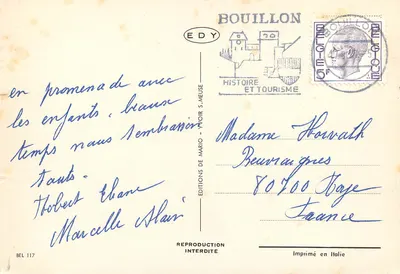 BOUILLON
HISTOIRE
ET TOURISME
EDY
BELGIE
BELGIQUE
en promenade avec
les enfants. beau
temps nous t'embrassons
touts.
Hobert Eliane
Marcelle Alain
EDITIONS DE MARIO - VYDIR S/MEUSE
Madame Horvath
Beuvraignes
80700 Roye
France
BEL 117
REPRODUCTION
INTERDITE
Imprimé en Italie